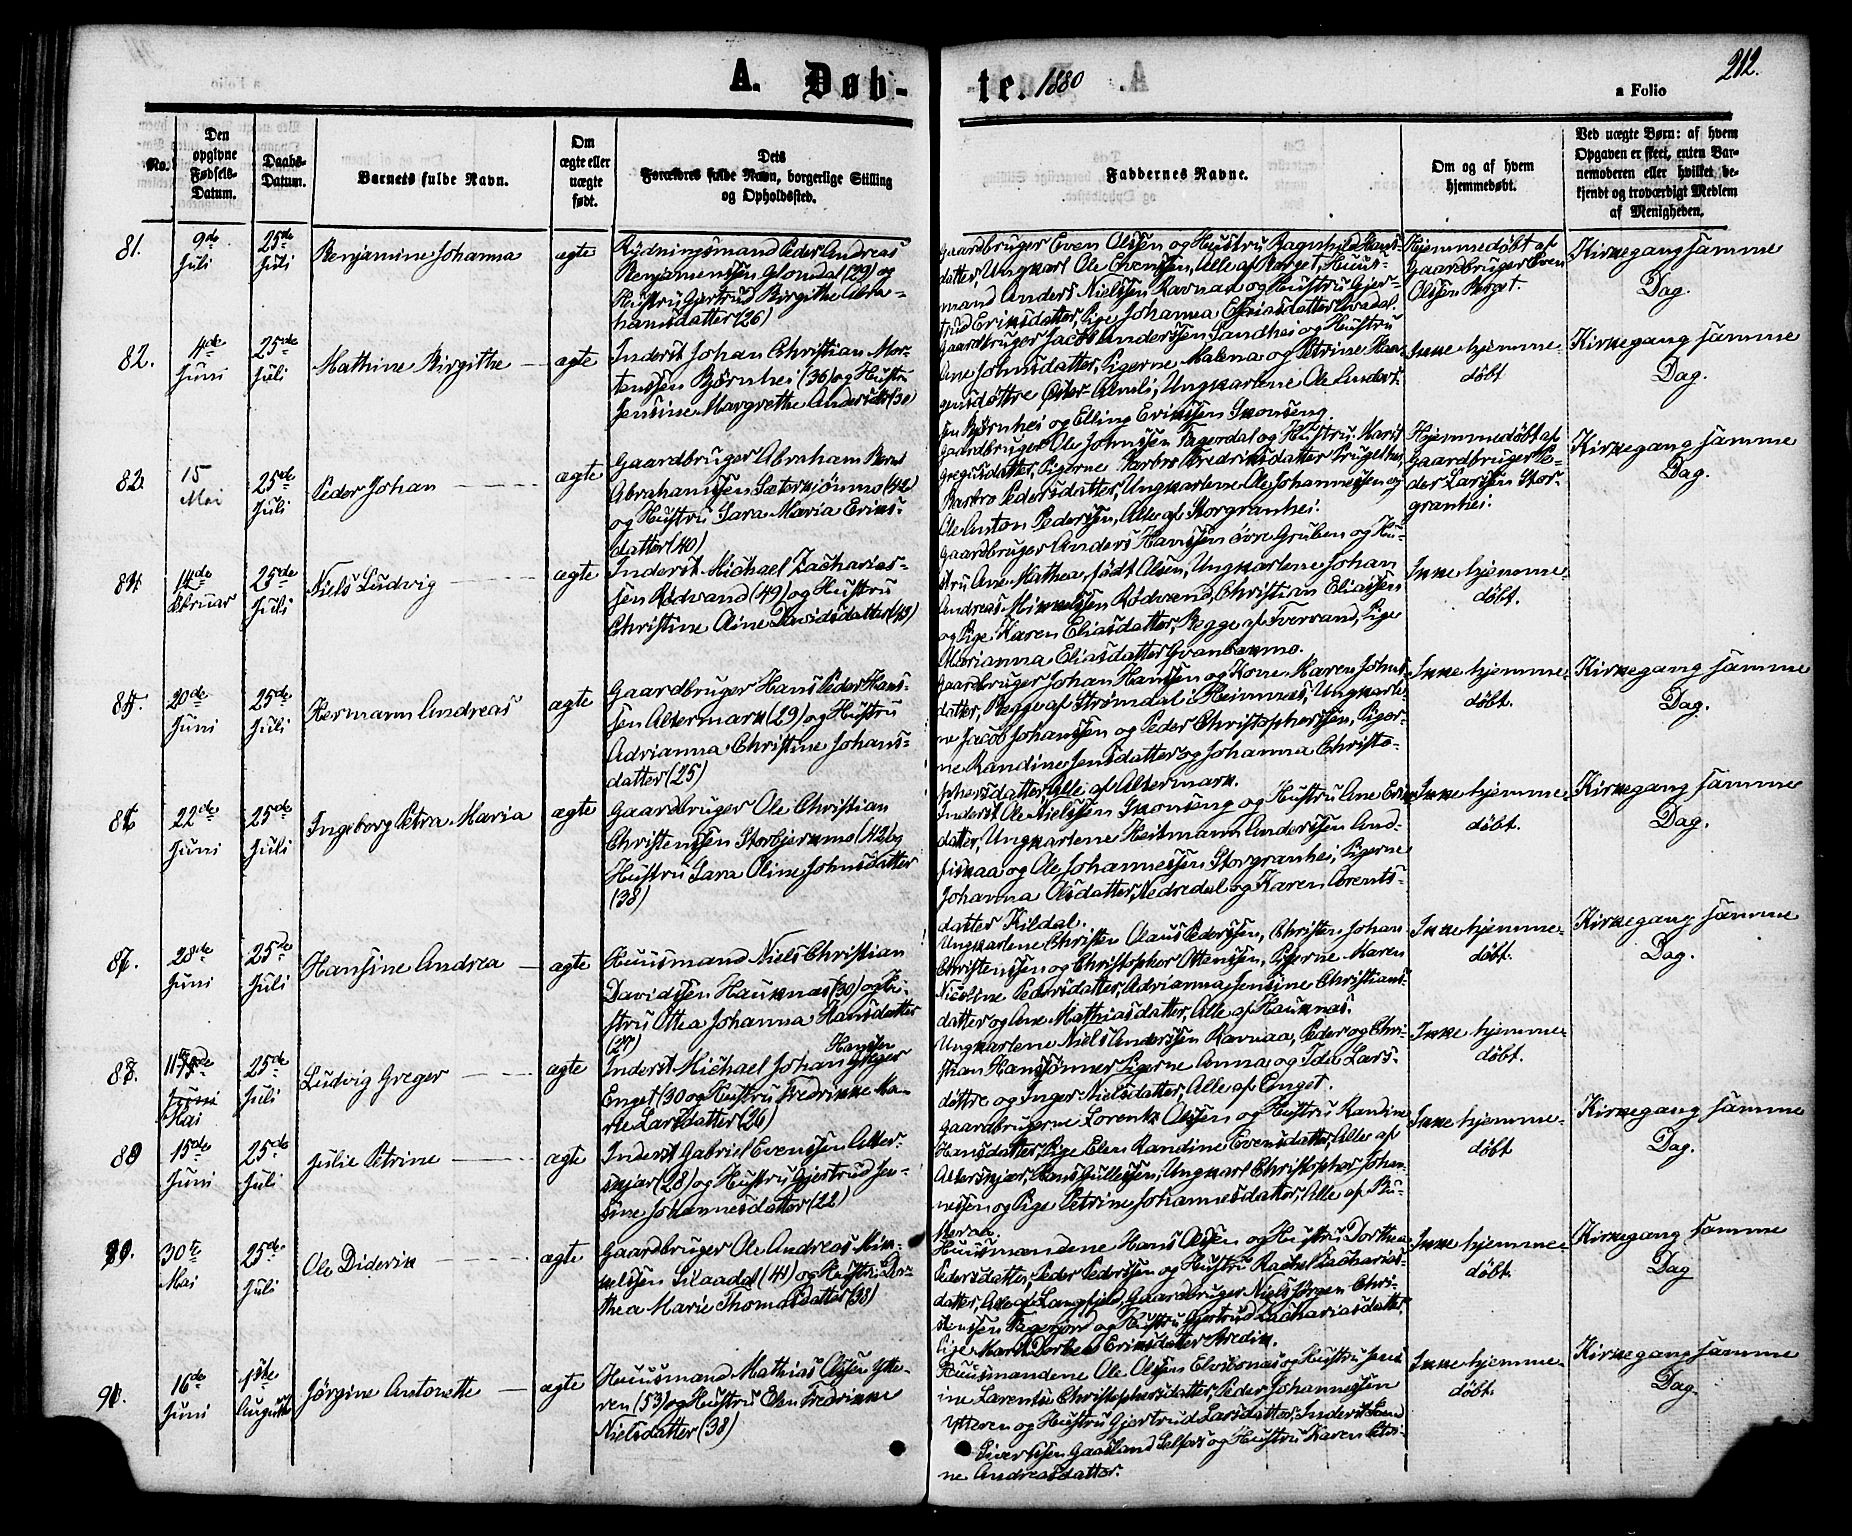 212.
A. Døb-
te. 1880
a Folio
No.
Den opgivne Fødsels-Datum.
Daabs-Datum.
Barnets fulde Navn.
Om ægte eller uægte født.
Dets
Forældres fulde Navn, borgerlige Stilling
og Opholdssted.
Faddernes Navne.
Om og af hvem
hjemmedøbt.
Ved uægte Børn: af hvem
Opgaven er skeet, enten Bar-
nemoderen eller hvilket be-
kjendt og troværdigt Medlem
af Menigheden.
81.
9de Juli
25de Juli
Benjamine Johanna
ægte
Rydningsmand Peder Andreas
Benjaminssen Glomdal (29) og
Hustru Gjertrud Birgithe Abra-
hamsdatter (26)
Gaardbruger Even Olssen og Hustru Ragnhild Hans-
datter, Ungkarl Ole Evenssen, Alle af Berget, Huus-
mand Anders Nielssen Ravnaa og Hustru Gjer-
trud Eriksdatter, Pige Johanna Esaiasdatter
Hjemmedøbt af
Gaardbruger Even
Olssen Berget.
Kirkegang samme
Dag.
82.
4de Juni
25de Juli
Mathine Birgithe
ægte
Inderst Johan Christian Mor-
tenssen Bjørnhei (36) og Hustru
Jensine Margrethe Andersdtr
Gaardbruger Jacob Anderssen Sandhei og Hustru
Ane Johnsdatter, Pigerne Malena og Petrine Haa-
gensdøttre Ungkarlene Ole
sen Bjørnhei og Elling Erikssen Skonseng.
Ikke hjemme-
døbt
Kirkegang samme
Dag.
15 Mai
25de Juli
Peder Johan
ægte
Gaardbruger Abraham Bernt
Abrahamssen Sæterskjønmo (42)
og Hustru Sara Maria Eriks-
datter (40)
Gaardbruger Ole Johnssen Fagerdal og Hustru Marit
Gregusdatter, Pigerne Barbro Fredriksdatter
Barbro Pedersdatter, Ungkarlene Ole Johannessen og
Ole Anton Pedersen, Alle af Storgranhei.
Hjemmedøbt af
Gaardbruger Pe-
der Larssen Stor-
granhei.
Kirkegang samme
Dag.
84.
14de Februar
25de Juli
Niels Ludvig
ægte
Inderst Michael Zacharias-
sen Rødvand (49) og Hustru
Christine Aine Davidsdatter (43)
Gaardbruger Anders Hanssen øvre Gruben og Hu-
stru Ane Mathea født Olsen, Ungkarlene Johan
Andreas Mikkelssen Rødvand, Christian Eliassen
og Pige Karen Eliasdatter, Begge af Tvervand, Pige
Marianna Eliasdatter
Ikke hjemme-
døbt.
85.
20de Juni
25de Juli
Hermann Andreas
ægte
Gaardbruger Hans Peder Hans-
sen Altermark (29) og Hustru
Adrianna Christine Johans-
datter (25)
Gaardbruger Johan Hanssen og Kone Karen Johns-
datter, Begge af Strømdal i Hemnes, Ungkarle-
ne Jacob Johanssen og Peder Christopherssen, Piger-
ne Randine Jensdatter og Johanna Christo-
phersdatter, Alle af Altermark.
Ikke hjemme-
døbt.
Kirkegang samme
Dag.
86
22de Juni
25de Juli
Ingeborg Petra Maria
ægte
Gaardbruger Ole Christian
Christenssen Storbjerkmo (42) og
Hustru Sara Oline Johnsdatter
(38)
Inderst Ole Nielssen Skonseng og Hustru Ane
datter, Ungkarlene Heitmann Anderssen And-
fiskaa og Ole Johannessen Storgranhei, Pigerne
Johanna Olsdatter, Nedredal og Karen Arents-
datter Kildal.
Ikke hjemme-
døbt.
Kirkegang samme
Dag.
87.
28de Juni
25de Juli
Hansine Andrea
ægte
Huusmand Niels Christian
Davidssen Hauknæs (30) og Hu-
stru Othea Johanna Hansdatter
(27)
Ungkarlene Christen Olaus Pederssen, Christen Johan
Christenssen og Christopher Ottenssen, Pigerne Maren
Nicoline Pedersdatter, Adrianna Jensine Christians-
datter og Ane Mathiasdatter, Alle af Hauknæs.
Ikke hjemme-
døbt.
Kirkegang samme
Dag.
88.
11te
Juni
Mai
25de Juli
Ludvig Greger
ægte
Hanssen
Inderst Michael Johan Greger
Enget (30) og Hustru Fredrikke Ma-
rie Larsdatter (26)
Ungkarlene Niels Anderssen Ravnaa, Peder og Chri-
stian Hanssønner Pigerne Anna og Ida Lars-
døttre og Inger Nielsdatter, Alle af Enget.
Ikke hjemme-
døbt.
15de Juni
25de Juli
Julie Petrine
ægte
Inderst Gabriel Evenssen Alter-
skjær (28) og Hustru Gjertrud Jen-
sine Johannesdatter (22)
Gaardbrugerne Lorents Olssen og Hustru Randine
Hansdatter, Pige Elen Randine Evensdatter, Alle af
Alterskjær, Hans Gullessen, Ungkarl Christopher Johan-
nessen og Pige Petrine Johannesdatter, Alle af
Ikke hjemme-
døbt
Kirkegang samme
Dag.
30te Mai
25de Juli
Ole Diderik
ægte
Gaardbruger Ole Andreas Mik-
kelssen Lilaadal (41) og Hustru Dor-
thea Marie Thomasdatter (38)
Huusmændene Hans Olssen og Hustru Dorthea
Pedersdatter, Peder Pederssen og Hustru Rachel Zacharias-
datter, Alle af Langfjeld, Gaardbruger Niels Jørgen Chri-
stenssen og Hustru Gjertrud Zachariasdatter
Pige Marit Dorthea Eriksdatter
Ikke hjemme-
døbt.
Kirkegang samme
Dag
16de Juni
1ste August
Jørgine Antonette
ægte
Huusmand Mathias Olssen Ytte-
ren (53) og Hustru Elen Fredrikke
Nielsdatter (38)
Huusmændene Ole Olssen og Hustru
Larentse Christophersdatter, Peder Johannessen
Ytteren og Hustru Gjertrud Larsdatter, Inderst
Sivertssen Gaasland Selfors og Hustru Karen
ne Andreasdatter.
Ikke hjemme-
døbt.
Kirkegang samme
Dag.